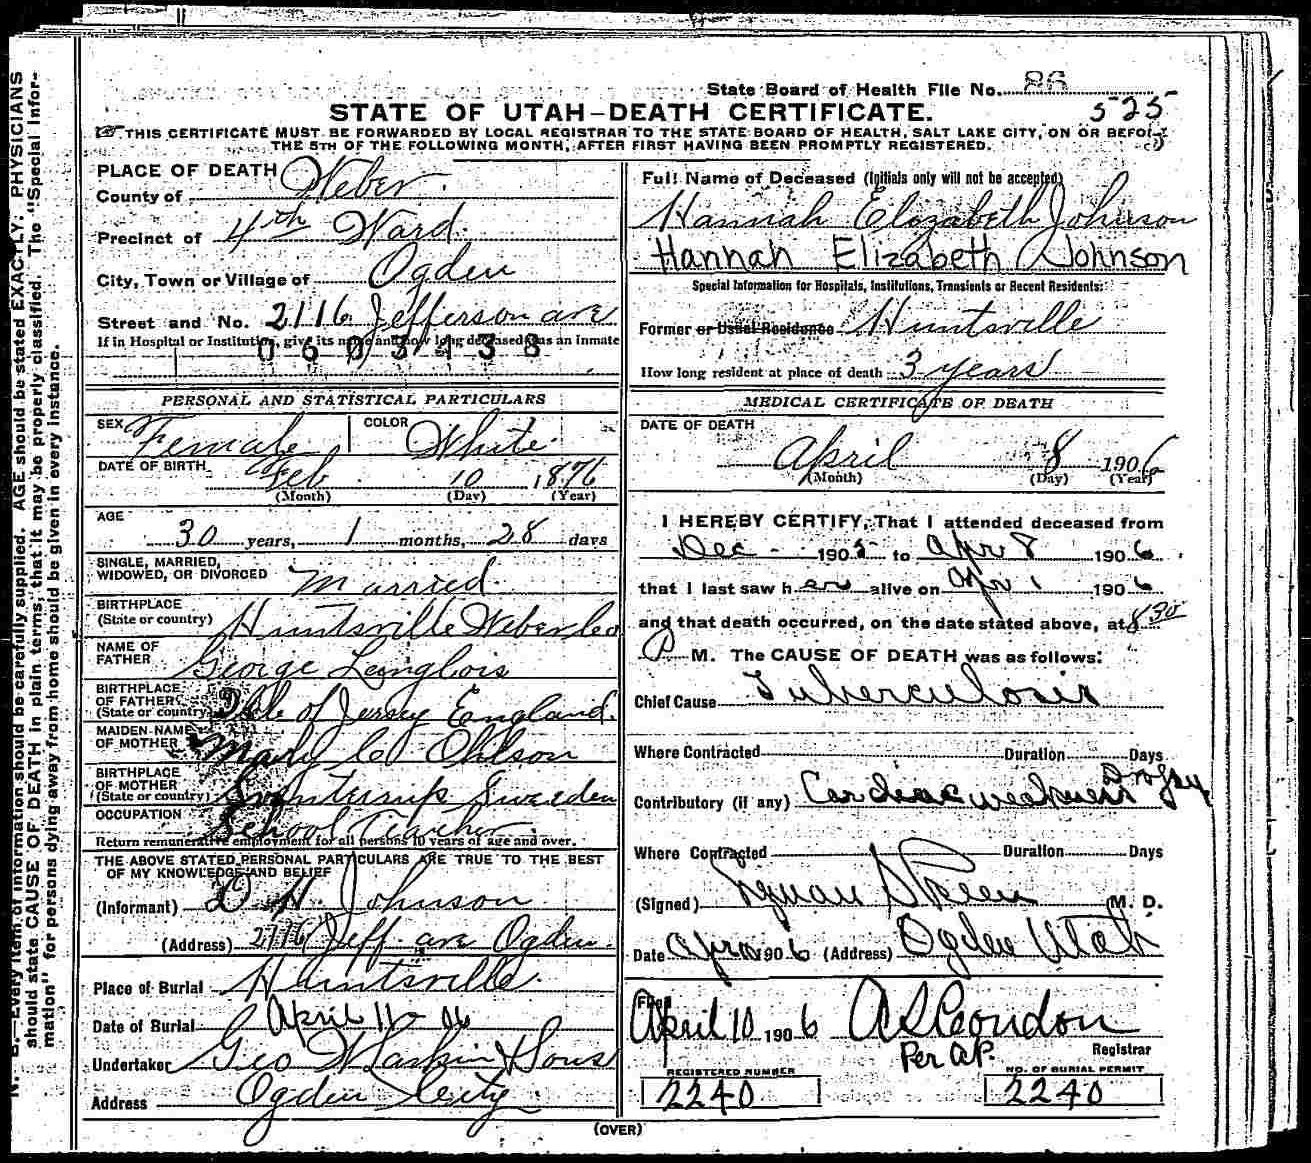 State Board of Health File No. 86
525
STATE OF UTAH-DEATH CERTIFICATE.
THIS CERTIFICATE MUST BE FORWARDED BY LOCAL REGISTRAR TO THE STATE BOARD OF HEALTH, SALT LAKE CITY, ON OR BEFORE
THE 5TH OF THE FOLLOWING MONTH, AFTER FIRST HAVING BEEN PROMPTLY REGISTERED.
PLACE OF DEATH
County of Weber
Precinct of 4th Ward
City, Town or Village of Ogden
Street and No. 2116 Jefferson ave
If in Hospital or Institution, give its name and how long deceased was an inmate
0603438
PERSONAL AND STATISTICAL PARTICULARS
SEX Female COLOR White
DATE OF BIRTH Feb 10 1876
(Month) (Day) (Year)
AGE
30 years, 1 months, 28 days
SINGLE, MARRIED,
WIDOWED, OR DIVORCED Married
BIRTHPLACE
(State or country) Huntsville Weber Co
NAME OF
FATHER George Langlois
BIRTHPLACE
OF FATHER
(State or country) Isle of Jersey England.
MAIDEN NAME
OF MOTHER Mary C Ohlson
BIRTHPLACE
OF MOTHER
(State or country) Sweeden
OCCUPATION School Teacher
Return remunerative employment for all persons 10 years of age and over.
THE ABOVE STATED PERSONAL PARTICULARS ARE TRUE TO THE BEST
OF MY KNOWLEDGE AND BELIEF
(Informant) D H Johnson
(Address) 2716 Jeff. ave Ogden.
Place of Burial Huntsville.
Date of Burial April 11 - 06
Undertaker Geo W Larkin & Sons
Address Ogden City
Full Name of Deceased (Initials only will not be accepted)
Hannah Elizabeth Johnson
Hannah Elizabeth Johnson
Special Information for Hospitals, Institutions, Transients or Recent Residents:
Former or Usual Residence Huntsville
How long resident at place of death 3 years
MEDICAL CERTIFICATE OF DEATH
DATE OF DEATH
April 8 1906
(Month) (Day) (Year)
I HEREBY CERTIFY, That I attended deceased from
Dec 1905 to Apr 8 1906
that I last saw her alive on Apr 1 1906
and that death occurred, on the date stated above, at 8 30
P M. The CAUSE OF DEATH was as follows:
Chief Cause Tuberculosis
Where Contracted Duration Days
Contributory (if any) Cardiac weakness
Where Contracted Duration Days
(Signed) Lyman Skeen M. D.
Date Apr 1906 (Address) Ogden Utah
Filed
April 10 1906 A S Condon
Per AP. Registrar
REGISTERED NUMBER NO. OF BURIAL PERMIT
2240 2240
(OVER)
N. B.—Every item of information should be carefully supplied. AGE should be stated EXACTLY. PHYSICIANS
should state CAUSE OF DEATH in plain terms, that it may be properly classified. The "Special Infor-
mation" for persons dying away from home should be given in every instance.